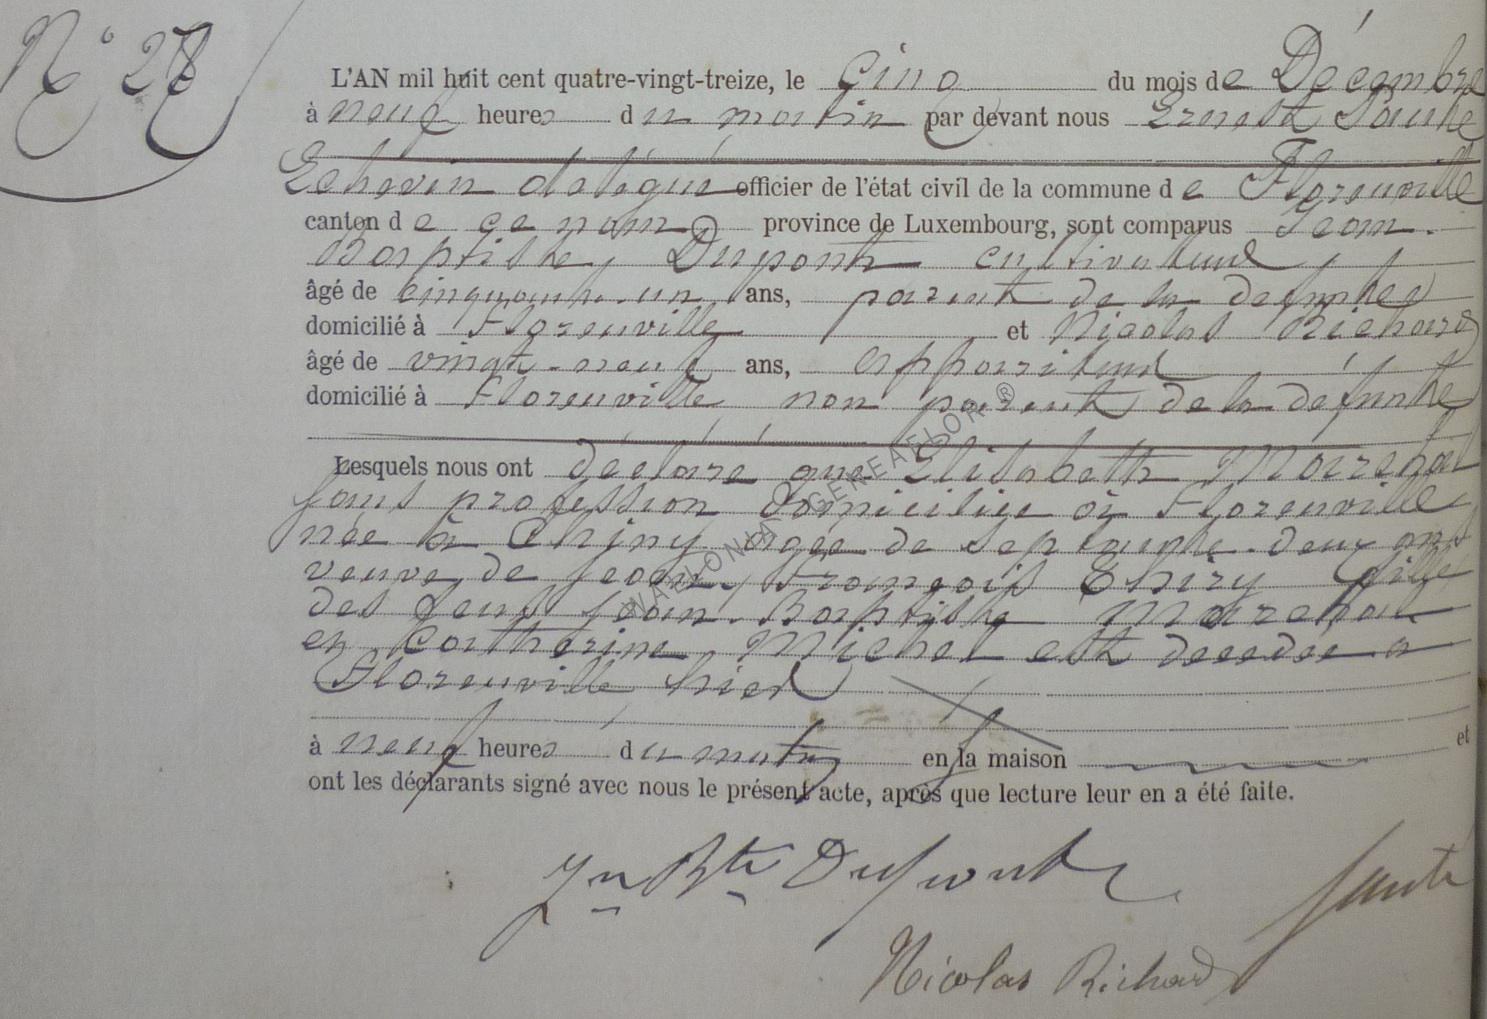 N° 28
L'AN mil huit cent quatre-vingt-treize, le Cinq du mois de Décembre
à neuf heures du matin par devant nous Ernest Sauté
Echevin délégué officier de l'état civil de la commune de Florenville
canton de ce nom province de Luxembourg, sont comparus Jean
Baptiste Dupont cultivateur
âgé de cinquante-un ans, parent de la défunte
domicilié à Florenville et Nicolas Richard
âgé de vingt-neuf ans, appariteur
domicilié à Florenville non parent de la défunte
Lesquels nous ont déclaré que Elisabeth Maréchal
sans profession domiciliée à Florenville
née à Chiny agée de septante-deux ans
veuve de Jean-François Thiry fille
des feus Jean-Baptiste Maréchal
et Catherine Michel est décédée à
Florenville hier
à neuf heures du matin en la maison et
ont les déclarants signé avec nous le présent acte, après que lecture leur en a été faite.
WALLONIA GENEAFLOR ®
Jn Bte Dupont
Sauté
Nicolas Richard